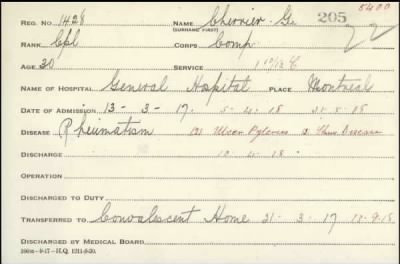 5400
REG. NO. 1428 NAME Cherrier. G. 205
(SURNAME FIRST) 22
RANK Cpl CORPS Comp
AGE 30 SERVICE 1 10/12
NAME OF HOSPITAL General Hospital PLACE Montreal
DATE OF ADMISSION 13 - 3 - 17. 5-4-18
DISEASE Rheumatism (2) Ulcer Pylorus
DISCHARGE 12-4-18-
OPERATION
DISCHARGED TO DUTY
TRANSFERRED TO Convalescent Home 21 - 3 - 17
DISCHARGED BY MEDICAL BOARD